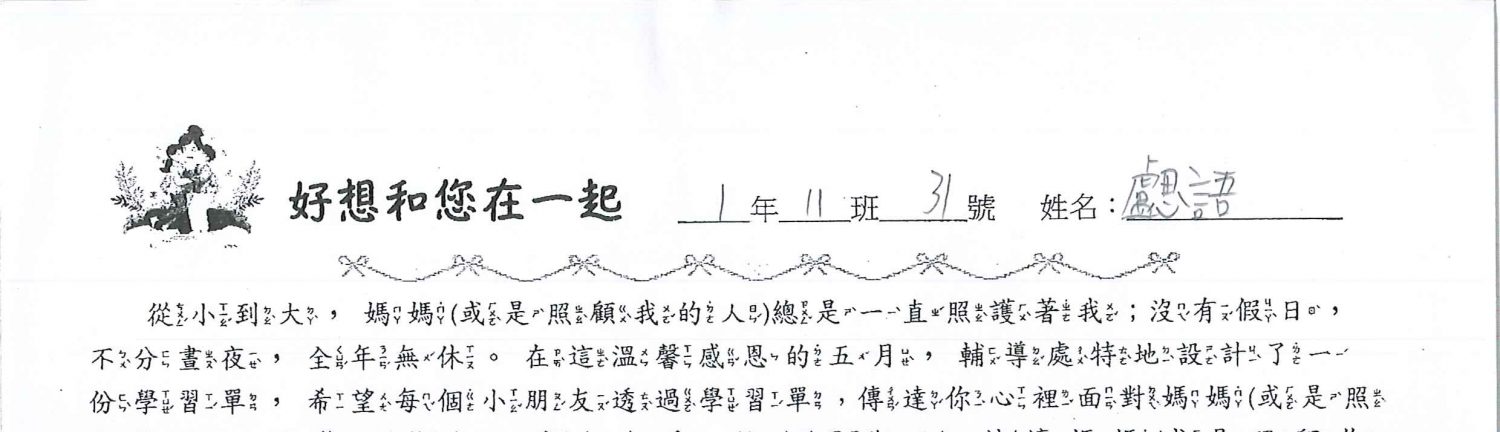 好想和您在一起 1年11班31號 姓名：盧思語
從小到大，媽媽(或是照顧我的人)總是一直照護著我；沒有假日，
不分晝夜，全年無休。在這溫馨感恩的五月，輔導處特地設計了一
份學習單，希望每個小朋友透過學習單，傳達你心裡面對媽媽(或是照